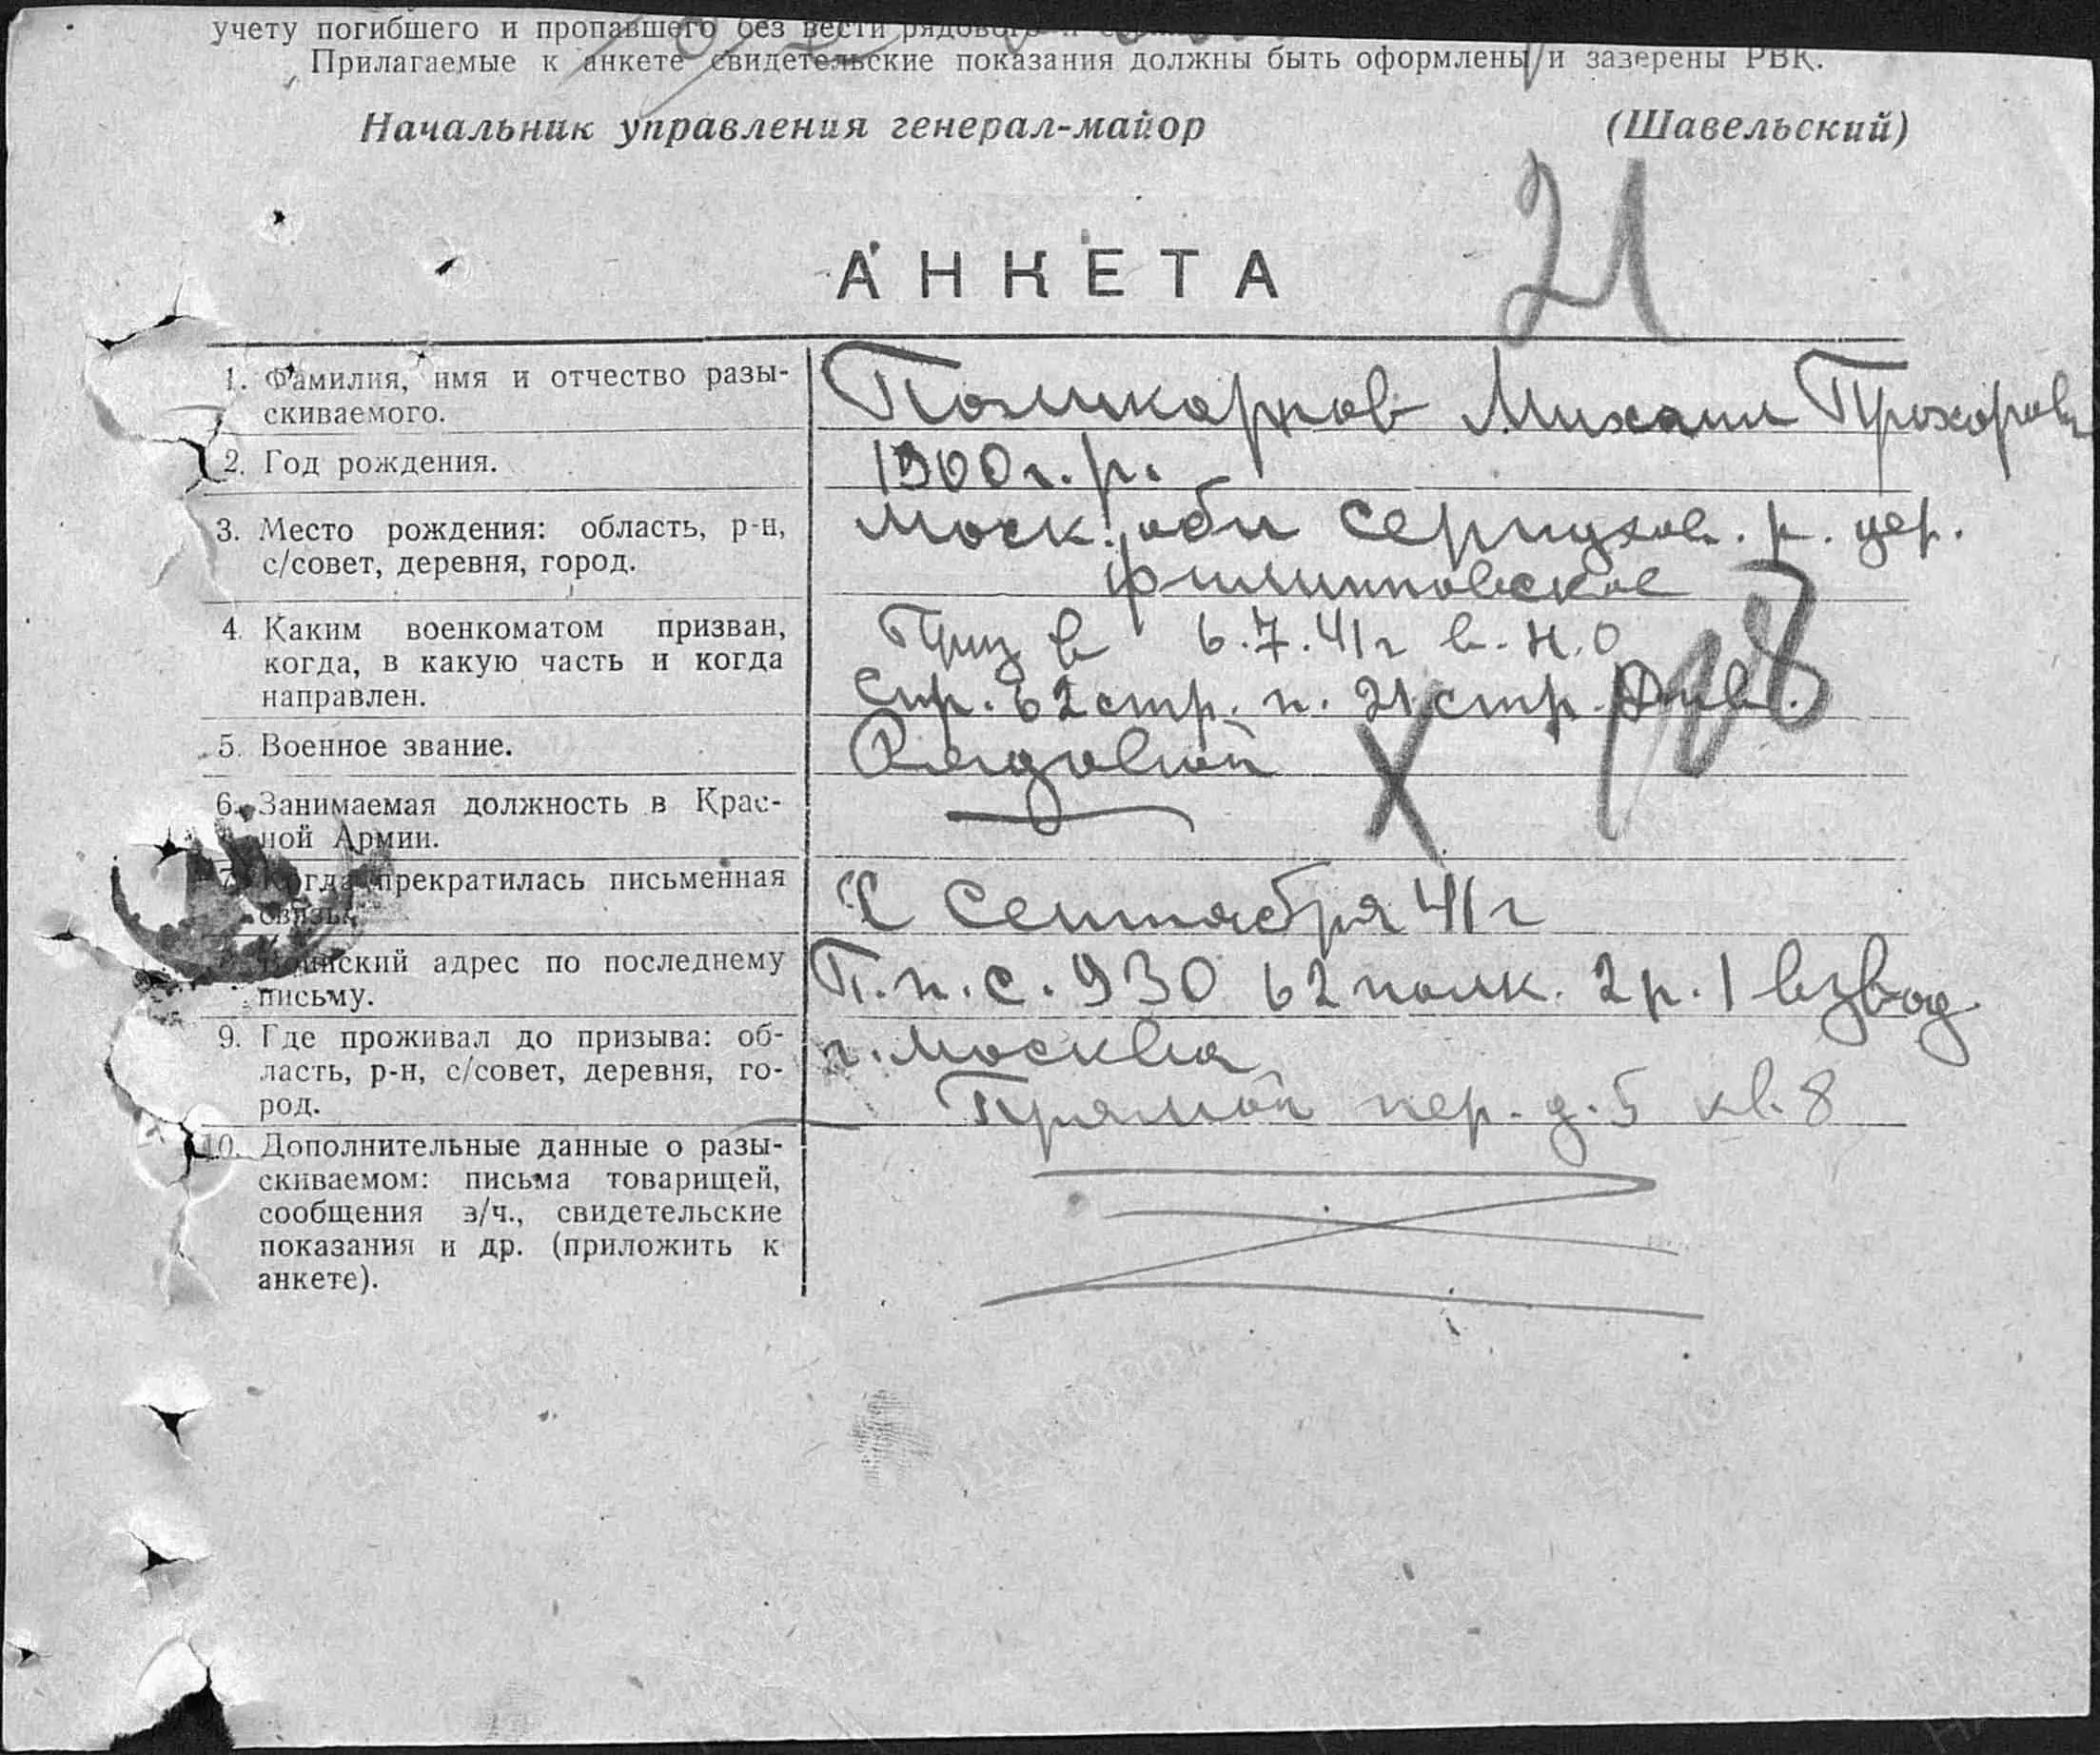 учету погибшего и пропавшего без вести рядового и
Прилагаемые к анкете свидетельские показания должны быть оформлены и заверены РВК.
Начальник управления генерал-майор (Шавельский)
21
АНКЕТА
1. Фамилия, имя и отчество разы-
скиваемого.
Поликарпов Михаил Прохоров
2. Год рождения.
1900 г.р.
3. Место рождения: область, р-н,
с/совет, деревня, город.
Моск. обл Серпухов. р. дер.
Филипповское
4. Каким военкоматом призван,
когда, в какую часть и когда
направлен.
Приз в 6.7.41г в. Н.О
стр. 62 стр. п. 21 стр. Див.
5. Военное звание.
Рядовой
6. Занимаемая должность в Крас-
ной Армии.
7. Когда прекратилась письменная
связь.
С Сентября 41 г
Воинский адрес по последнему
письму.
П.п.с. 930 62 полк. 2 р. 1 взвод
9. Где проживал до призыва: об-
ласть, р-н, с/совет, деревня, го-
род.
г. Москва
Прямой пер. д. 5 кв. 8
10. Дополнительные данные о разы-
скиваемом: письма товарищей,
сообщения в/ч., свидетельские
показания и др. (приложить к
анкете).